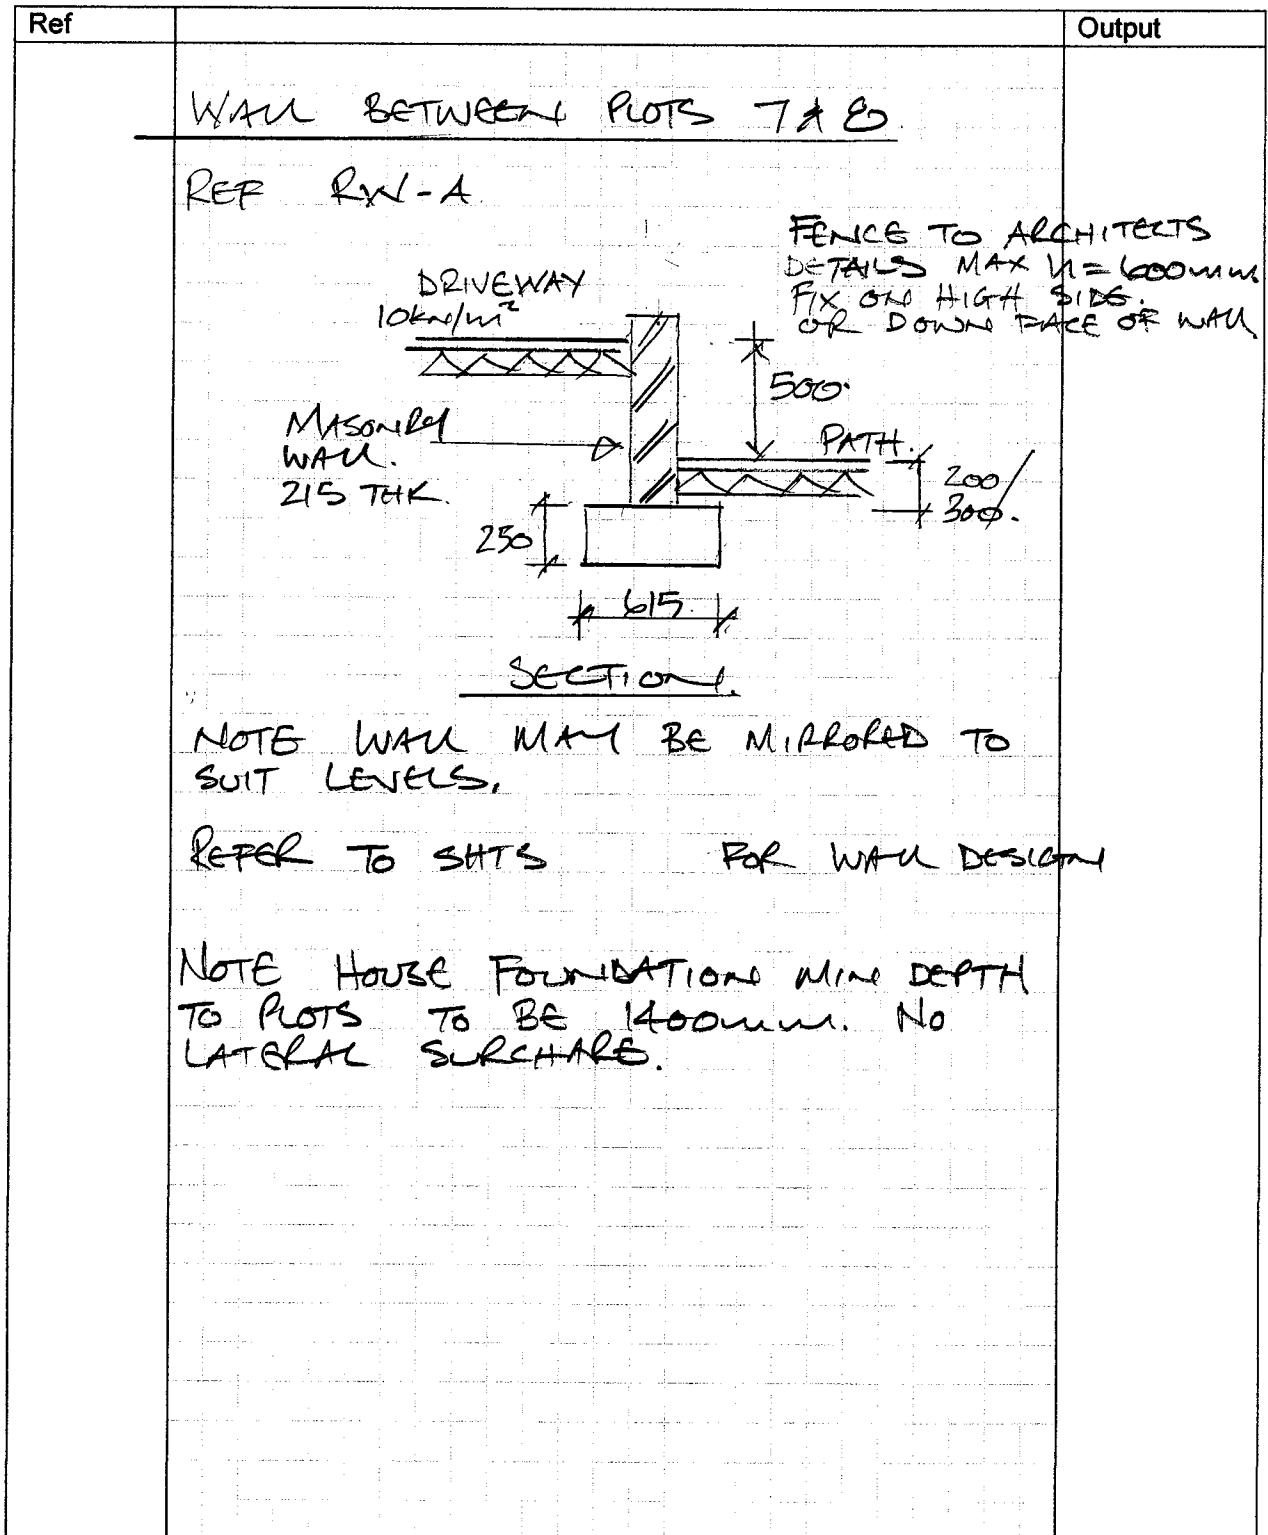 Ref
Output
WALL BETWEEN PLOTS 7 & 8.
REF RW-A
FENCE TO ARCHITECTS
DETAILS MAX H=600mm
FIX ON HIGH SIDE.
OR DOWN FACE OF WALL
DRIVEWAY
10kN/m²
500.
MASONRY
WALL.
215 THK.
PATH.
200/
300.
250
615.
SECTION.
NOTE WALL MAY BE MIRRORED TO
SUIT LEVELS.
REFER TO SHTS FOR WALL DESIGN
NOTE HOUSE FOUNDATION MIN DEPTH
TO PLOTS TO BE 1400mm. NO
LATERAL SURCHARE.